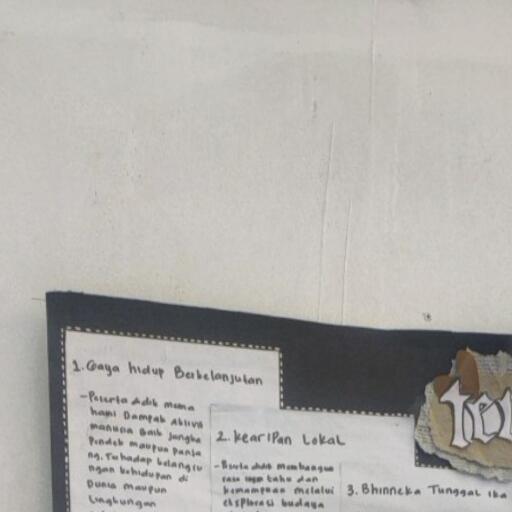 1. Gaya hidup Berkelanjutan
- Peserta didik mema
hami Dampak aktivs
manusia baik jangka
Pendek maupun panja
ng. Terhadap kelangsu
ngan kehidupan di
Dunia maupun
Lingkungan
2. kearipan Lokal
- Peserta didik membangun
rasa ingin tahu dan
kemampuan melalui
eksplorasi budaya
3. Bhinneka Tunggal ika